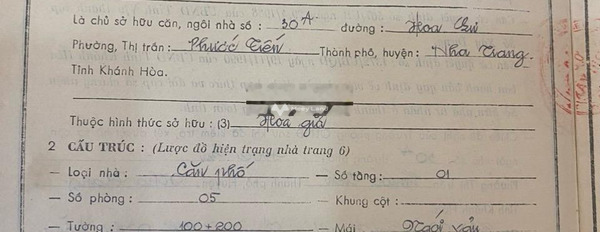 Là chủ sở hữu căn, ngôi nhà số : 30A đường : Hoa Lư
Phường, Thị trấn : Phước Tiến Thành phố, huyện : Nha Trang
Tỉnh Khánh Hòa.
Thuộc hình thức sở hữu : (3) Hoá giá
2 CẤU TRÚC : (Lược đồ hiện trạng nhà trang 6)
— Loại nhà : Căn phố — Số tầng : 01
— Số phòng : 05 — Khung cột : -
— Tường : 100 + 200 — Mái Ngói